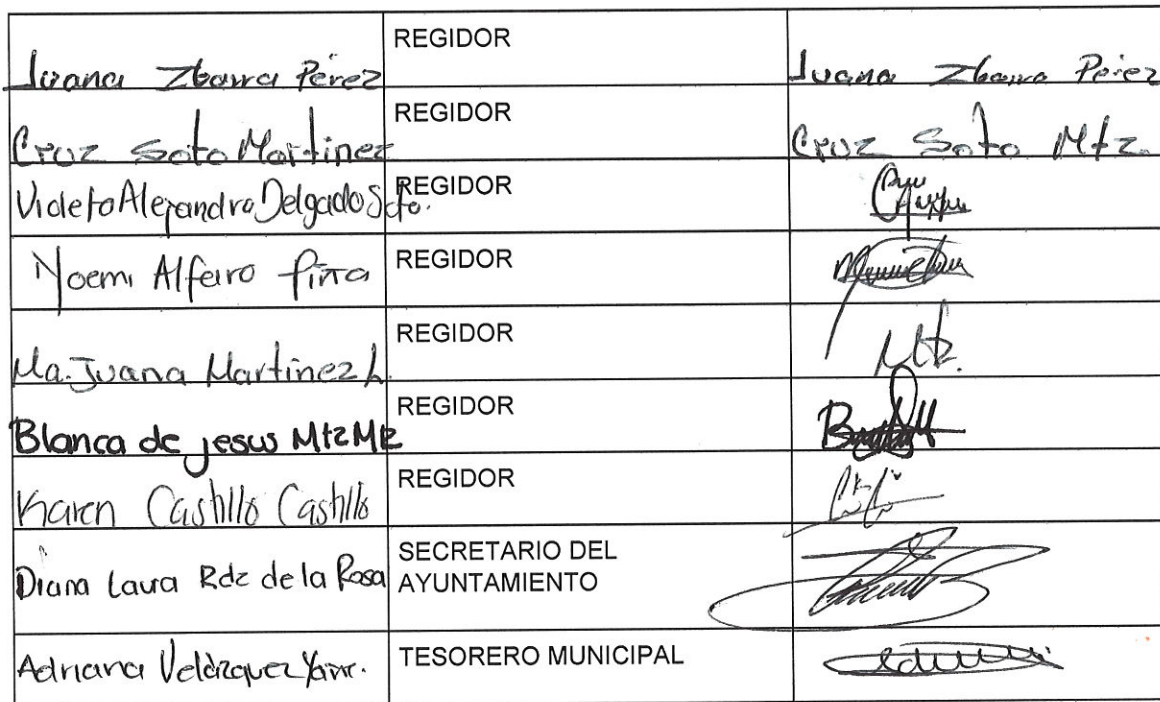 Juana Ibarra Pérez REGIDOR Juana Ibarra Pérez
Cruz Soto Martinez REGIDOR Cruz Soto Mtz.
Violeta Alejandra Delgado Soto. REGIDOR
Noemi Alfaro Piña REGIDOR
Ma. Juana Martinez L REGIDOR Mtz.
Blanca de jesus Mtz Mtz REGIDOR
Karen Castillo Castillo REGIDOR
Diana Laura Rdz de la Rosa SECRETARIO DEL
AYUNTAMIENTO
Adriana Velázquez TESORERO MUNICIPAL